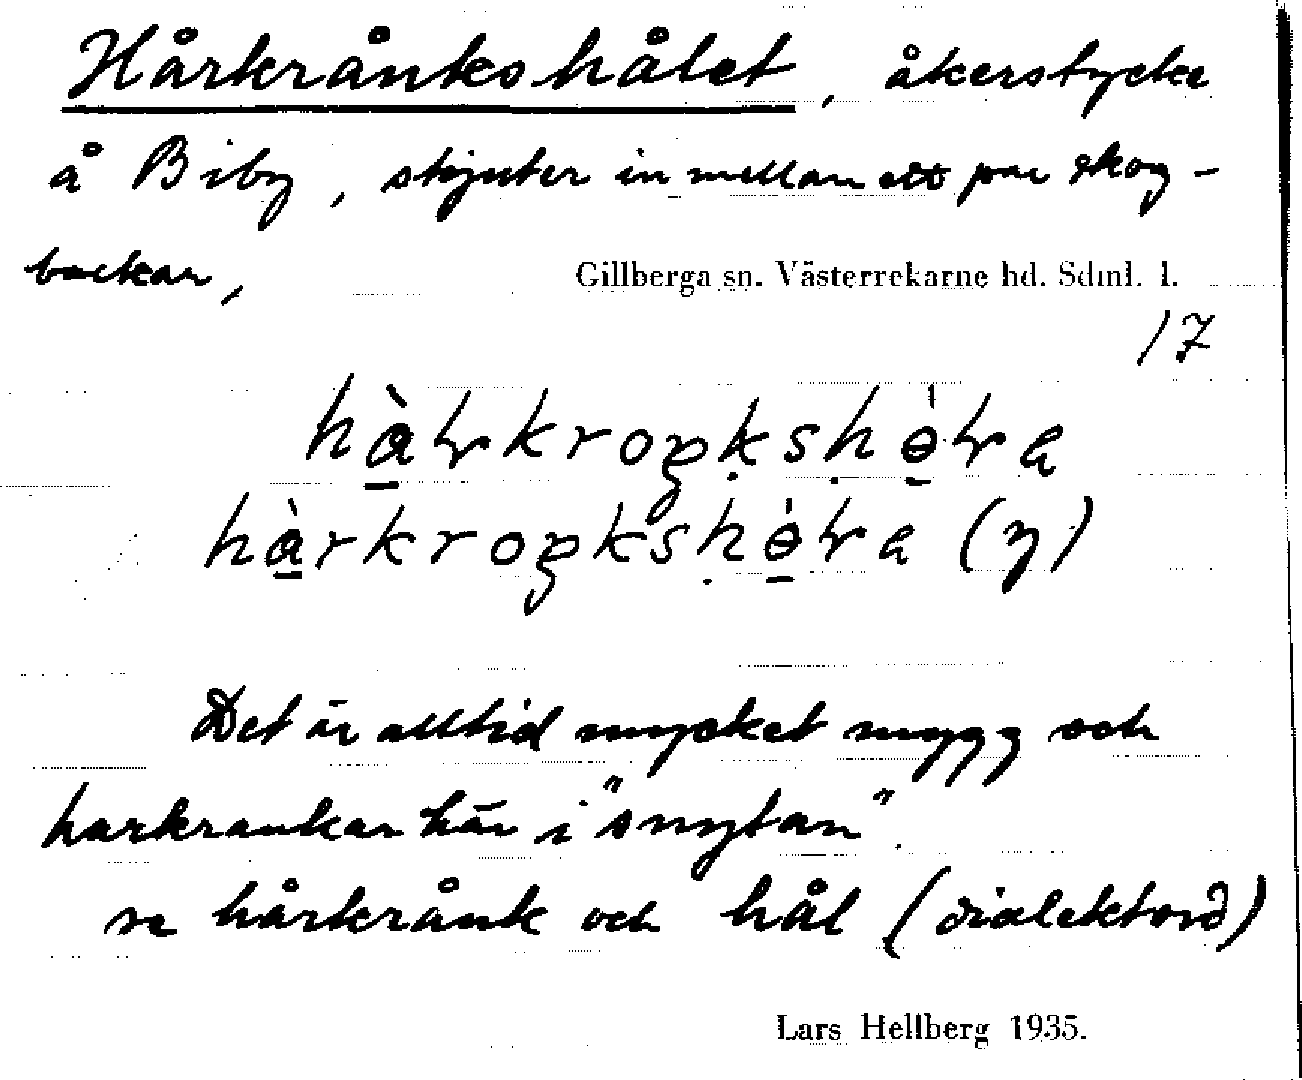 Hårkrånkshålet, åkerstycke
å Biby, skjuter in mellan ett par skog-
backar,
Gillberga sn. Västerrekarne hd. Sdml. l.
17
Det är alltid mycket mygg och
harkrankar här i "snytan".
se hårkrånk och hål (dialektord)
Lars Hellberg 1935.